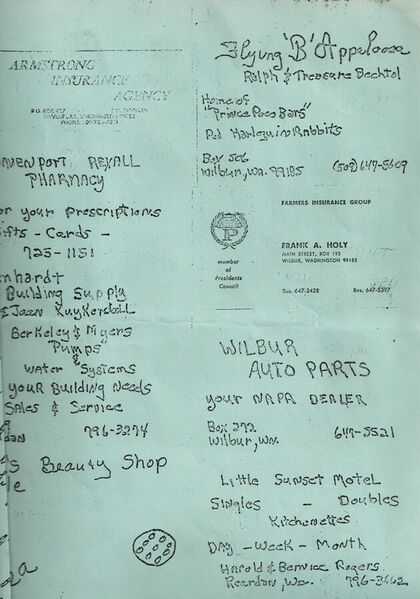 ARMSTRONG
INSURANCE
AGENCY
DAVENPORT, WASHINGTON 99122
AVENPORT REXALL
PHARMACY
or your prescriptions
ifts - Cards -
725-1151
enhardt
Building Supply
& Jean Kuykendall
Berkeley & Myers
Pumps
&
Water Systems
your Building Needs
Sales & Service
rdan 796-3274
's Beauty Shop
le
za
Flying "B" Appaloosa
Ralph & Treasure Bechtol
Home of
"Prince Poco Bars"
Red Harlequin Rabbits
Box 506
Wilbur, Wa. 99185 (509) 647-5609
FARMERS INSURANCE GROUP
P
member
of
Presidents
Council
FRANK A. HOLY
MAIN STREET, BOX 193
WILBUR, WASHINGTON 99185
Bus. 647-2428 Res. 647-5397
WILBUR
AUTO PARTS
your NAPA DEALER
Box 272
Wilbur, Wn. 647-5521
Little Sunset Motel
Singles - Doubles
Kitchenettes
Day - Week - Month
Harold & Bernice Rogers
Reardan, Wa. 796-3662